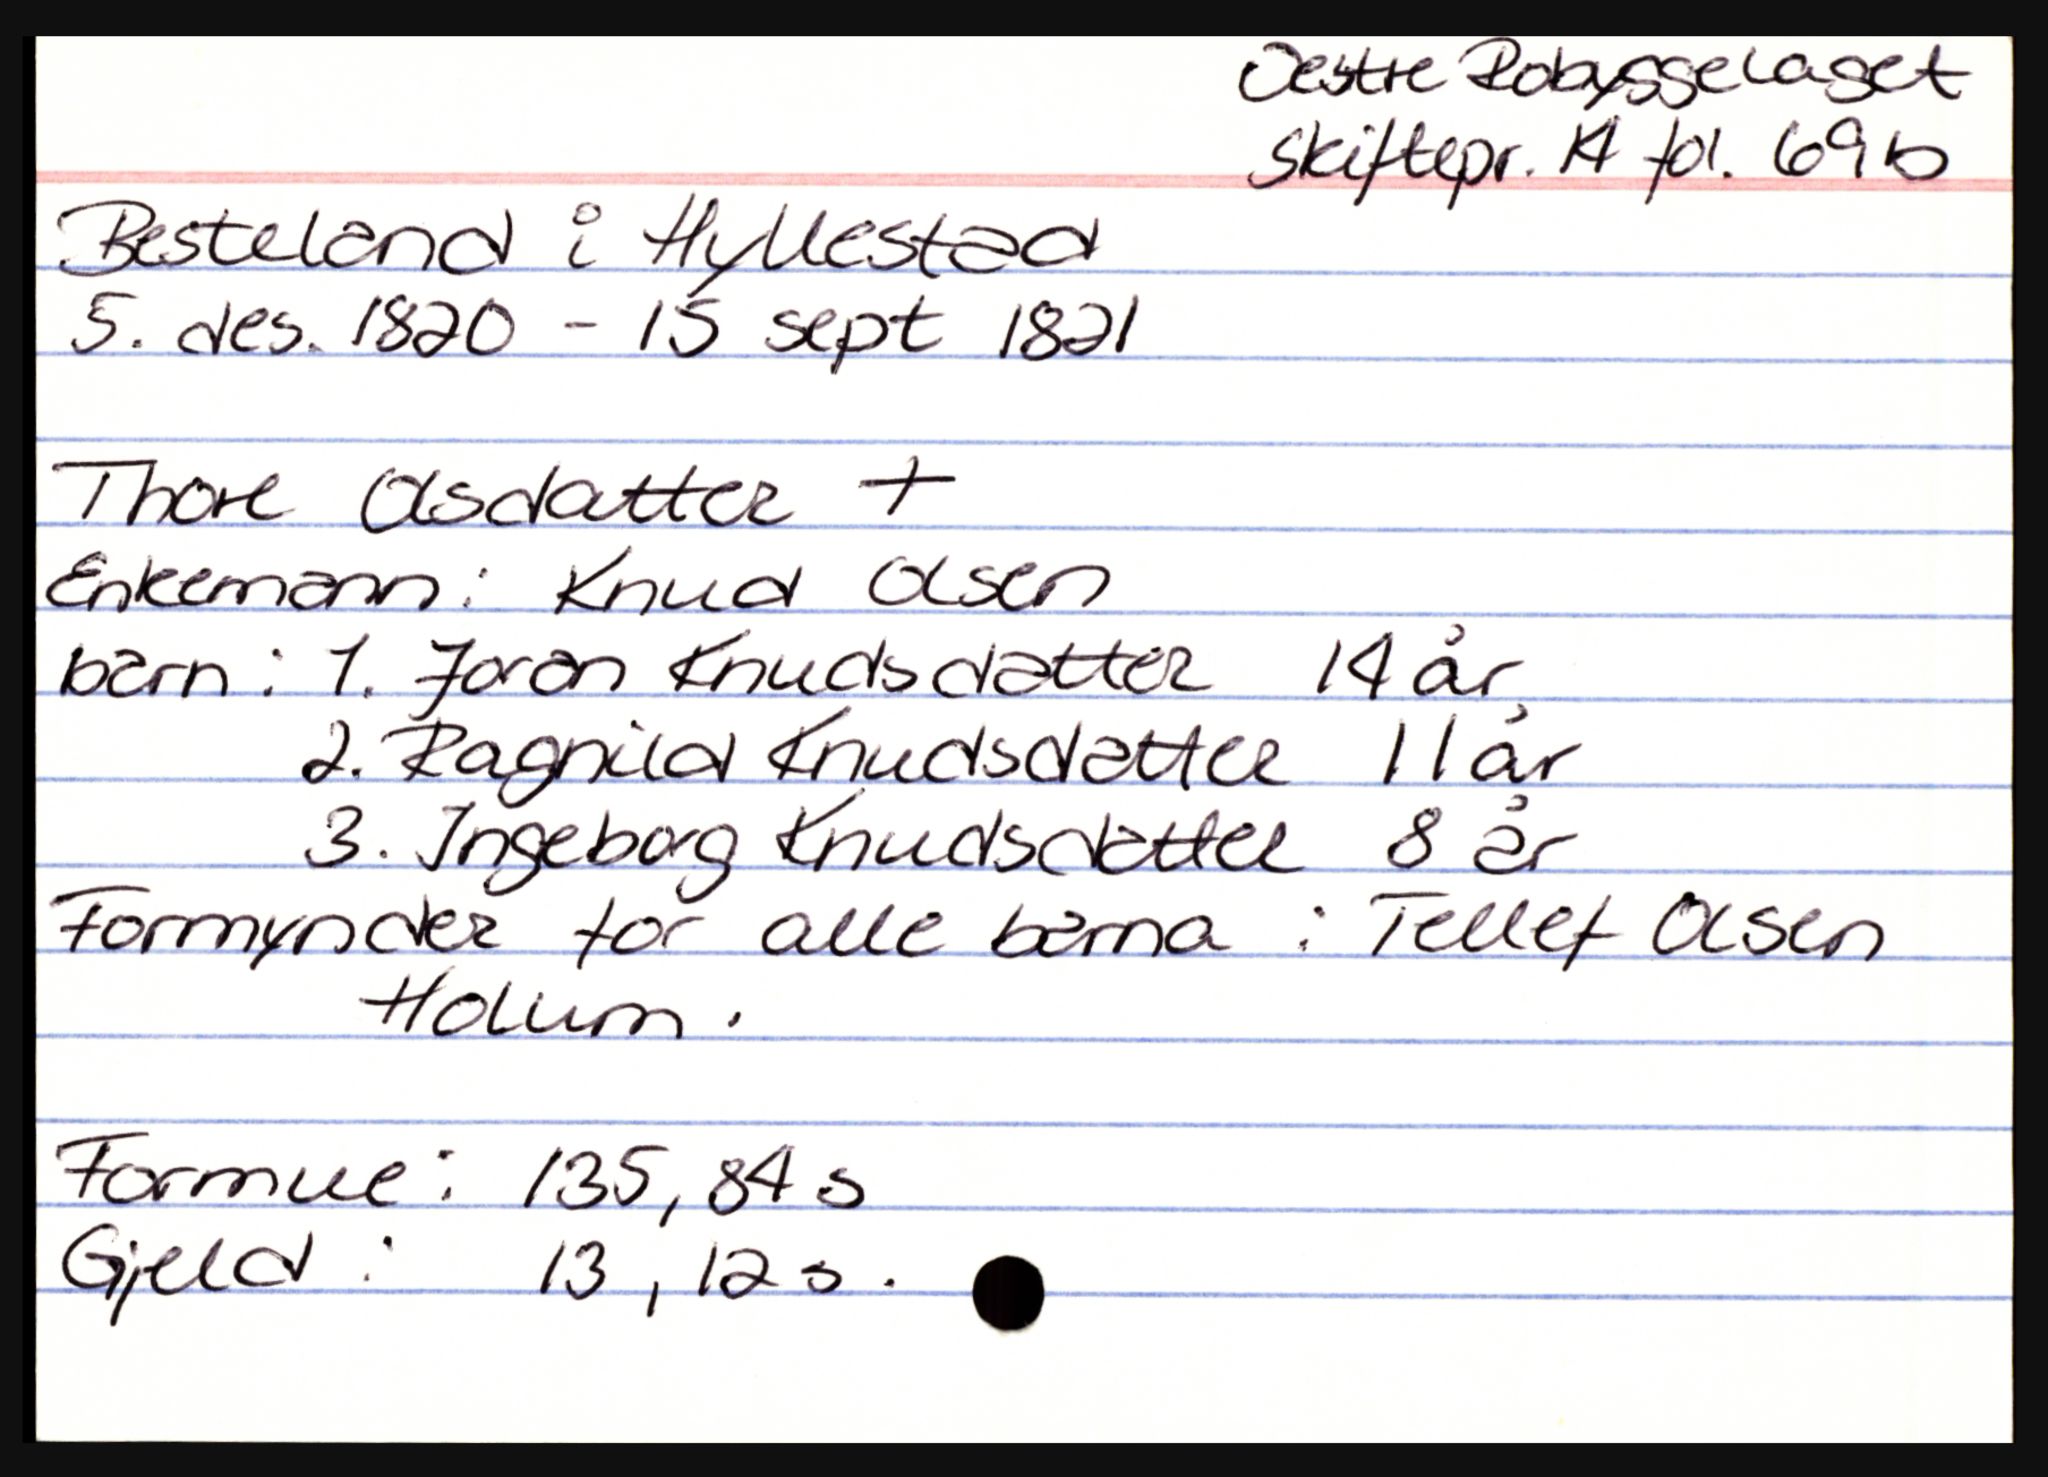 Oestre Robyggelaget
Skiftepr. 14 fol. 69b
Besteland i Hyllestad
5. des. 1820 - 15 sept 1821
Thore Olsdatter +
Enkemann: Knud Olsen
barn: 1. Joran Knudsdatter 14 år
2. Ragnild Knudsdatter 11 år
3. Ingeborg Knudsdatter 8 år
Formynder for alle barna: Tellef Olsen
Holum.
Formue: 135, 84 s
Gjeld: 13, 12 s.